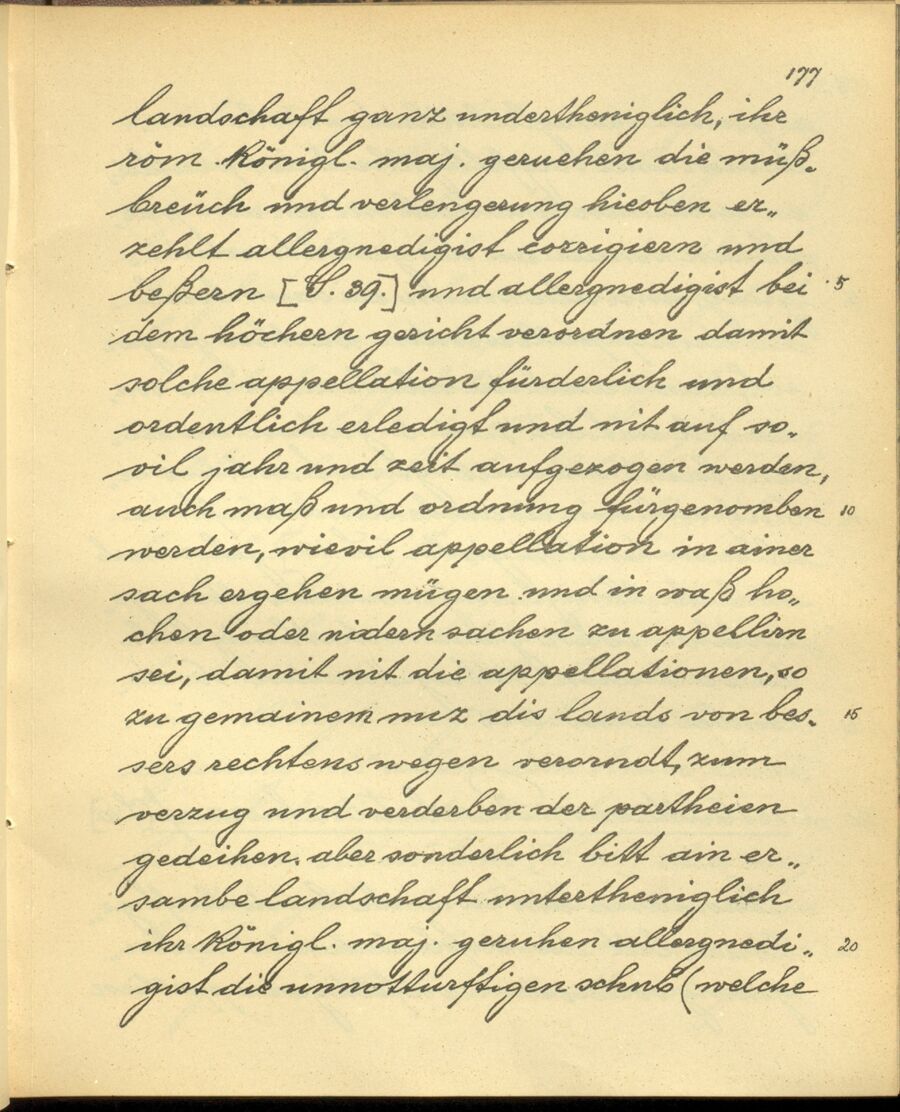 177
landschaft ganz undertheniglich, ihr
röm. Königl. maj. geruehen die müß„
breüch und verlengerung hieoben er„
zehlt allergnedigist corrigiern und
beßern [S. 39.] und allergnedigist bei 5
dem höchern gericht verordnen damit
solche appellation fürderlich und
ordentlich erledigt und nit auf so„
vil jahr und zeit aufgezogen werden,
auch maß und ordnung fürgenomben 10
werden, wievil appellation in ainer
sach ergehen mügen und in waß ho„
chen oder nidern sachen zu appellirn
sei, damit nit die appellationen, so
zu gemainem nuz dis lands von bes„ 15
sers rechtens wegen verorndt, zum
verzug und verderben der partheien
gedeihen. aber sonderlich bitt ain er„
sambe landschaft untertheniglich
ihr Königl. maj. geruhen allergnedi„ 20
gist die unnotturftigen schub (welche